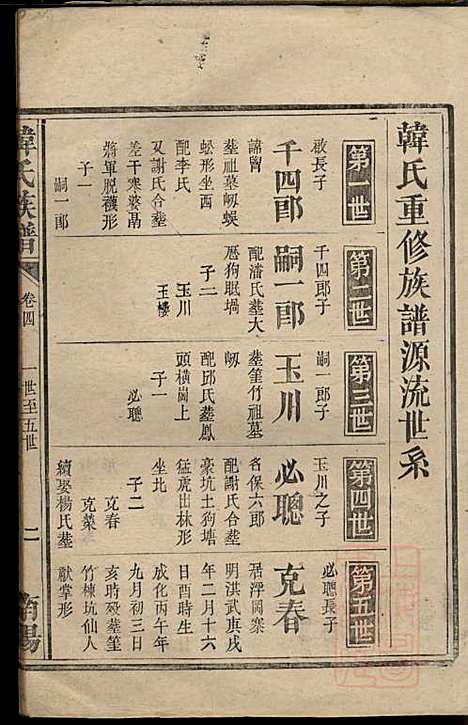 韓氏重修族譜源流世系
第一世
啟長子
千四郎
諱曾
葬祖墓㘭蜈
蚣形坐西
配李氏
又謝氏合葬
差干寒婆凸
將軍脫襪形
子一
嗣一郎
第二世
千四郎子
嗣一郎
配潘氏葬大
厝狗眠堝
子二
玉川
玉樓
第三世
嗣一郎子
玉川
葬篁竹祖墓
㘭
配邱氏葬鳳
頭橫崗上
子一
必聰
第四世
玉川之子
必聰
名保六郎
配謝氏合葬
豪坑土狗塘
猛虎出林形
坐北
子二
克春
克菜
續娶楊氏葬
第五世
必聰長子
克春
居浮岡寨
明洪武庚戌
年二月十六
日酉時生
成化丙午年
九月初三日
亥時歿葬篁
竹棟坑仙人
獻掌形
韓氏族譜
卷四
一世至五世
二
南陽